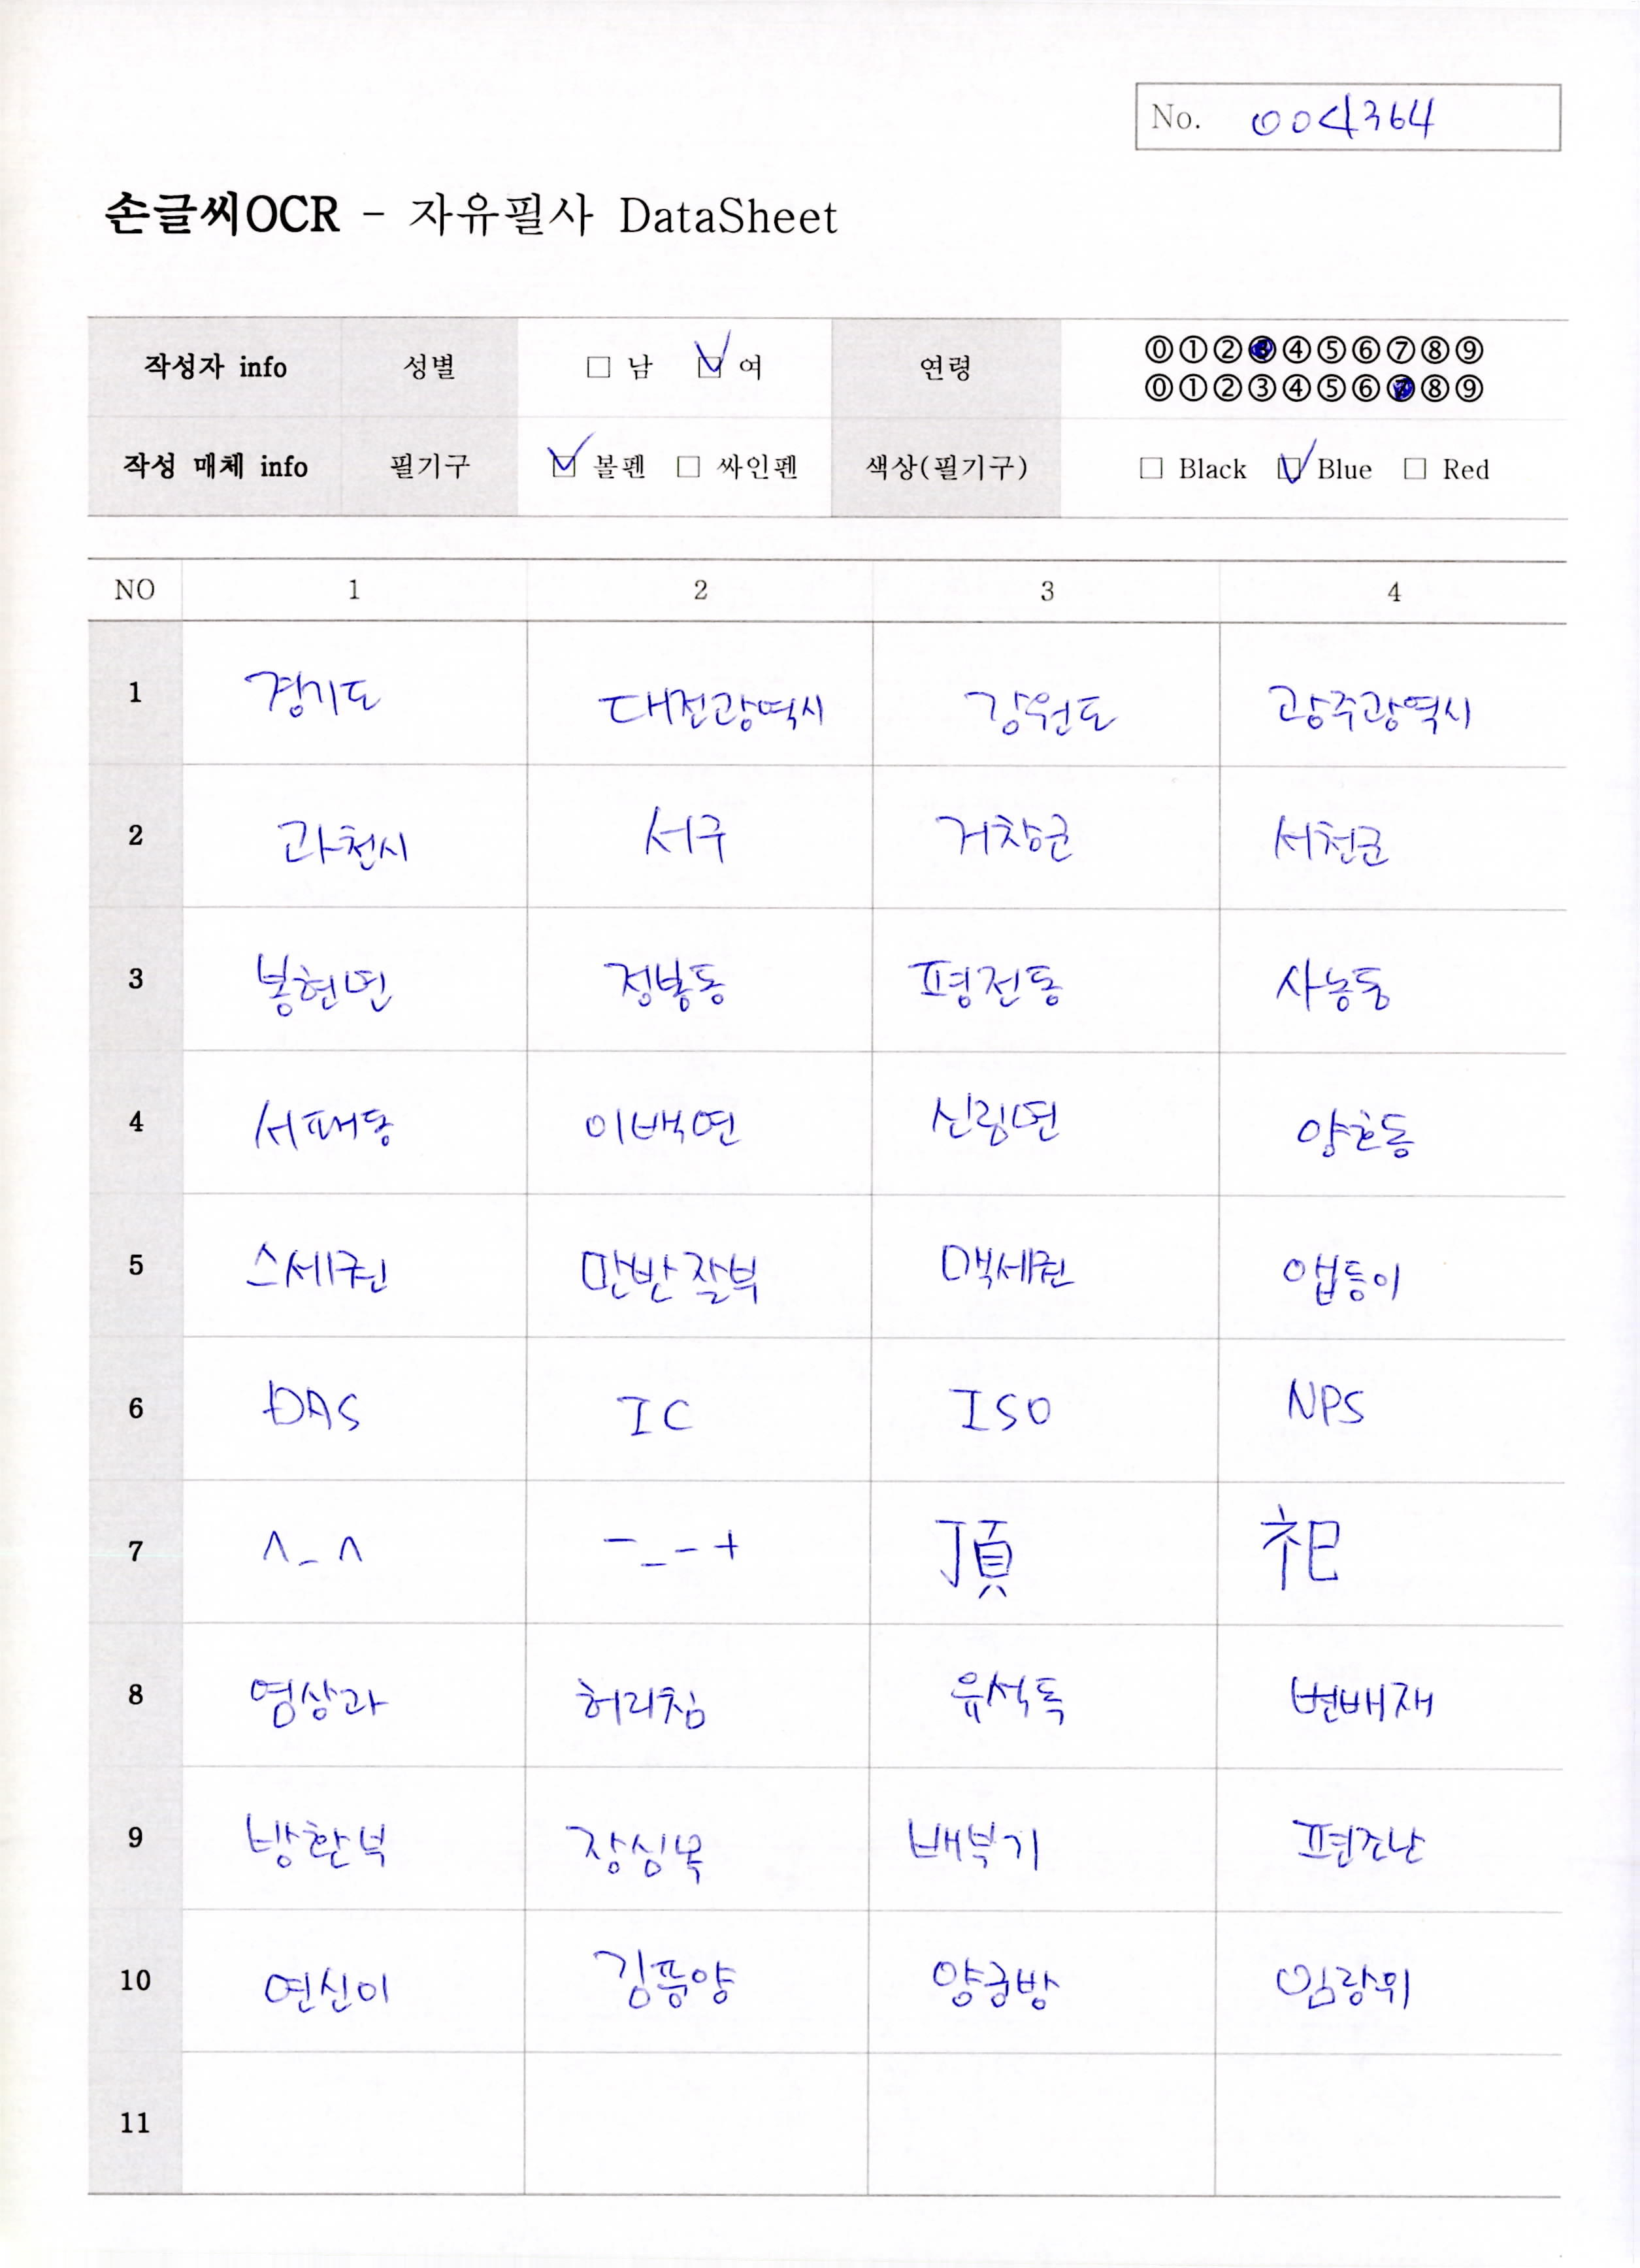 No. 004364
손글씨OCR - 자유필사 DataSheet
작성자 info 성별 □ 남 ☑ 여 연령 ⓪①②③④⑤⑥⑦⑧⑨
⓪①②③④⑤⑥⑦⑧⑨
작성 매체 info 필기구 ☑ 볼펜 □ 싸인펜 색상(필기구) □ Black ☑ Blue □ Red
NO 1 2 3 4
1 경기도 대전광역시 강원도 광주광역시
2 과천시 서구 거창군 서천군
3 봉현면 정봉동 평전동 사농동
4 서패동 이백면 신림면 양호동
5 스세권 만반잘부 맥세권 앱등이
6 DAS IC ISO NPS
7 ^_^ -_-+ 頂 祀
8 영상과 허리침 유석특 변배재
9 방환북 장심목 배북기 편조난
10 연신이 김풍양 양궁방 임랑위
11